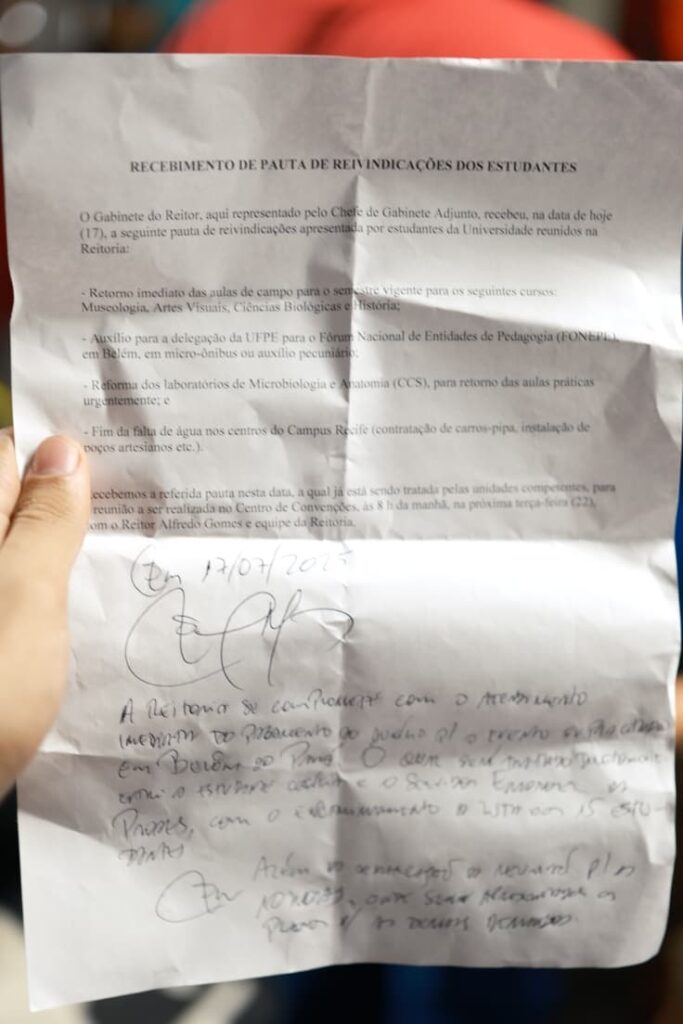 RECEBIMENTO DE PAUTA DE REIVINDICAÇÕES DOS ESTUDANTES
O Gabinete do Reitor, aqui representado pelo Chefe de Gabinete Adjunto, recebeu, na data de hoje
(17), a seguinte pauta de reivindicações apresentada por estudantes da Universidade reunidos na
Reitoria:
- Retorno imediato das aulas de campo para o semestre vigente para os seguintes cursos:
Museologia, Artes Visuais, Ciências Biológicas e História;
- Auxílio para a delegação da UFPE para o Fórum Nacional de Entidades de Pedagogia (FONEPE),
em Belém, em micro-ônibus ou auxílio pecuniário;
- Reforma dos laboratórios de Microbiologia e Anatomia (CCS), para retorno das aulas práticas
urgentemente; e
- Fim da falta de água nos centros do Campus Recife (contratação de carros-pipa, instalação de
poços artesianos etc.).
ecebemos a referida pauta nesta data, a qual já está sendo tratada pelas unidades competentes, para
reunião a ser realizada no Centro de Convenções, às 8 h da manhã, na próxima terça-feira (22),
om o Reitor Alfredo Gomes e equipe da Reitoria.
Em 17/07/2025
A Reitoria se compromete com o atendimento
imediato do pagamento do p/ o evento
em Belém do Pará. O qual será
entre o estudante e o Servidor
com o encaminhamento a lista dos 15 estu-
dantes
Em
Além p/ as
p/ as demais demandas